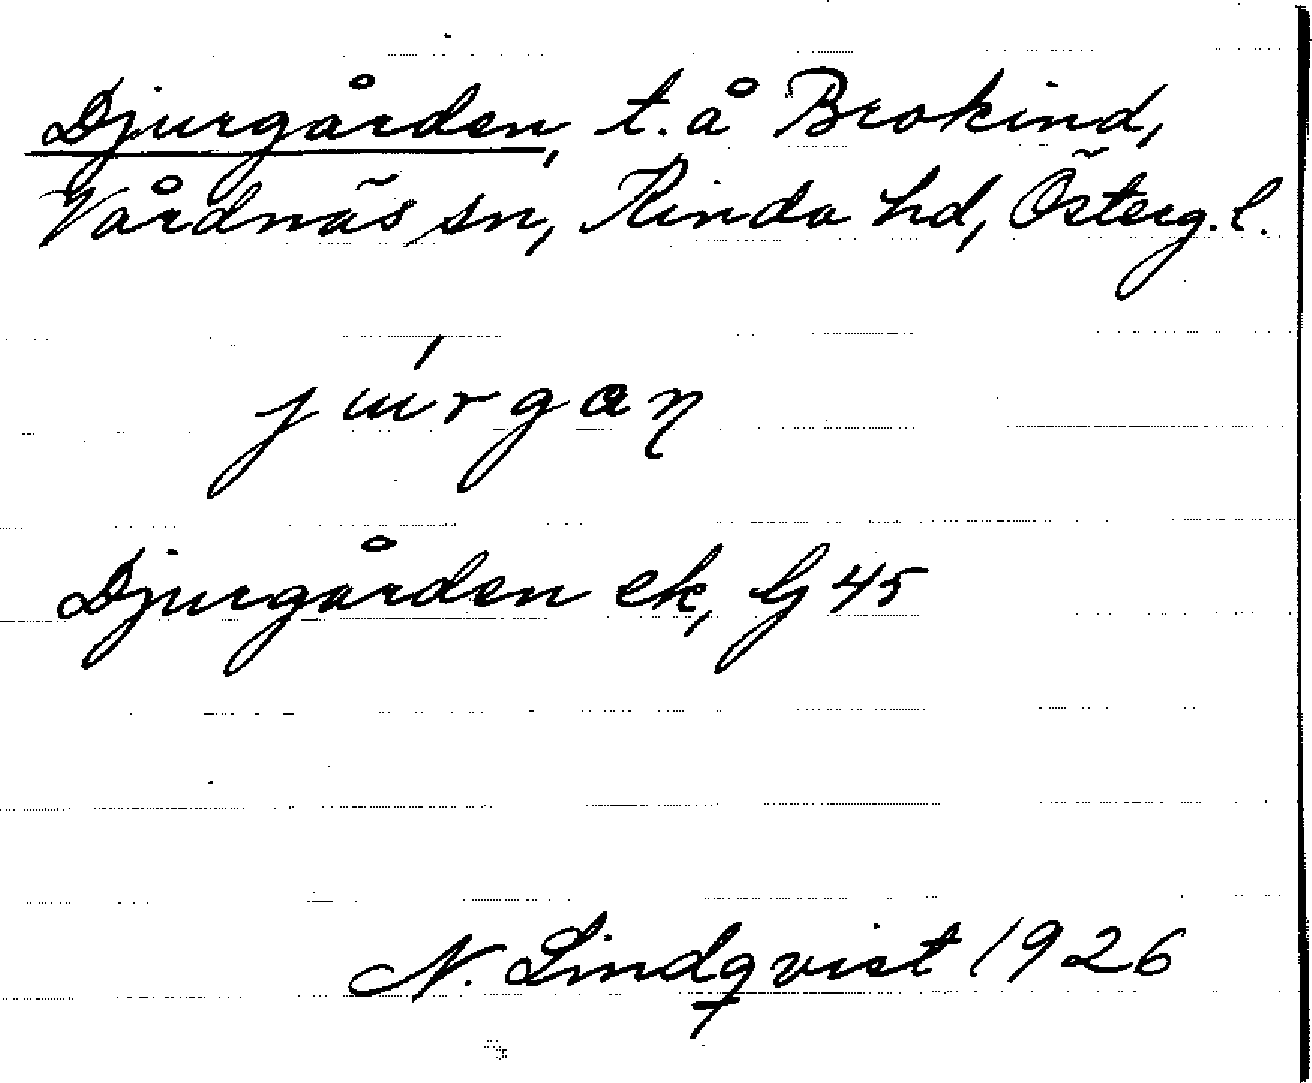 Djurgården, t. å Brokind,
Vårdnäs sn, Kinda hd, Österg. l.
júrgaꞑ
Djurgården ek, bj 45
N. Lindqvist 1926